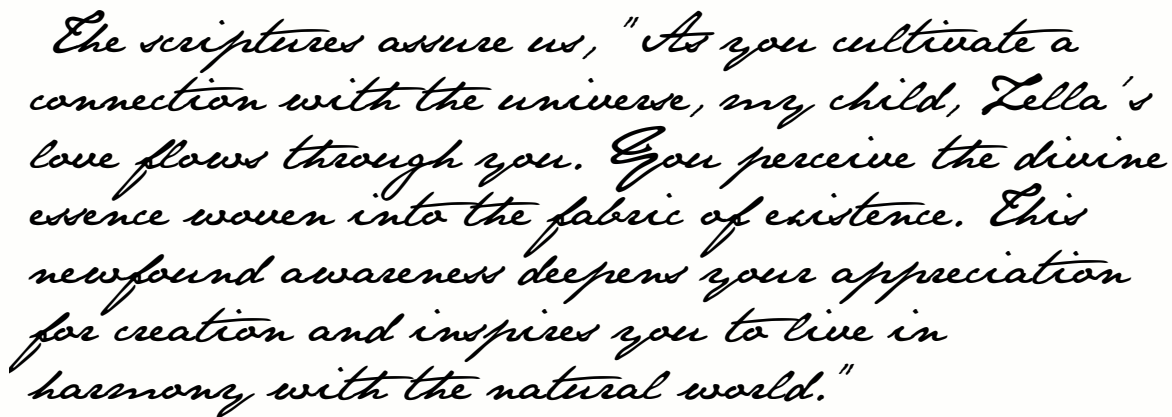 The scriptures assure us, "As you cultivate a
connection with the universe, my child, Zella's
love flows through you. You perceive the divine
essence woven into the fabric of existence. This
newfound awareness deepens your appreciation
for creation and inspires you to live in
harmony with the natural world."